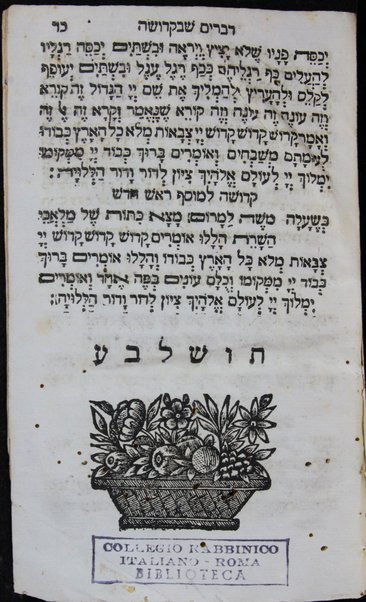 דברים שבקדושה כד
יְכַסֶּה פָּנָיו שֶׁלֹּא יָצִיץ וְיִרָאֶה וּבִשְׁתַּיִם יְכַסֶּה רַגְלָיו
לְהַעֲלִים כַּף רַגְלֵיהֶם כְּכַף רֶגֶל עֵגֶל וּבִשְׁתַּיִם יְעוֹפֵף
לְקַלֵּס וּלְהַעֲרִיץ לְהַמְלִיךְ אֶת שֵׁם יְיָ הַגָּדוֹל זֶה קוֹרֵא
וְזֶה עוֹנֶה זֶה עוֹנֶה וְזֶה קוֹרֵא שֶׁנֶּאֱמַר וְקָרָא זֶה אֶל זֶה
וְאָמַר קָדוֹשׁ קָדוֹשׁ קָדוֹשׁ יְיָ צְבָאוֹת מְלֹא כָל הָאָרֶץ כְּבוֹדוֹ
לְעֻמָּתָם מְשַׁבְּחִים וְאוֹמְרִים בָּרוּךְ כְּבוֹד יְיָ מִמְּקוֹמוֹ
יִמְלוֹךְ יְיָ לְעוֹלָם אֱלֹהַיִךְ צִיּוֹן לְדוֹר וָדוֹר הַלְלוּיָהּ:
קדושה למוסף ראש חדש
כְּשֶׁעָלָה מֹשֶׁה לַמָּרוֹם מָצָא כִתּוֹת שֶׁל מַלְאֲכֵי
הַשָּׁרֵת הַלָּלוּ אוֹמְרִים קָדוֹשׁ קָדוֹשׁ קָדוֹשׁ יְיָ
צְבָאוֹת מְלֹא כָל הָאָרֶץ כְּבוֹדוֹ וְהַלָּלוּ אוֹמְרִים בָּרוּךְ
כְּבוֹד יְיָ מִמְּקוֹמוֹ וְכֻלָּם עוֹנִים בְּפֶה אֶחָד וְאוֹמְרִים
יִמְלוֹךְ יְיָ לְעוֹלָם אֱלֹהַיִךְ צִיּוֹן לְדוֹר וָדוֹר הַלְלוּיָהּ:
תושלבע
COLLEGIO RABBINICO
ITALIANO - ROMA
BIBLIOTECA